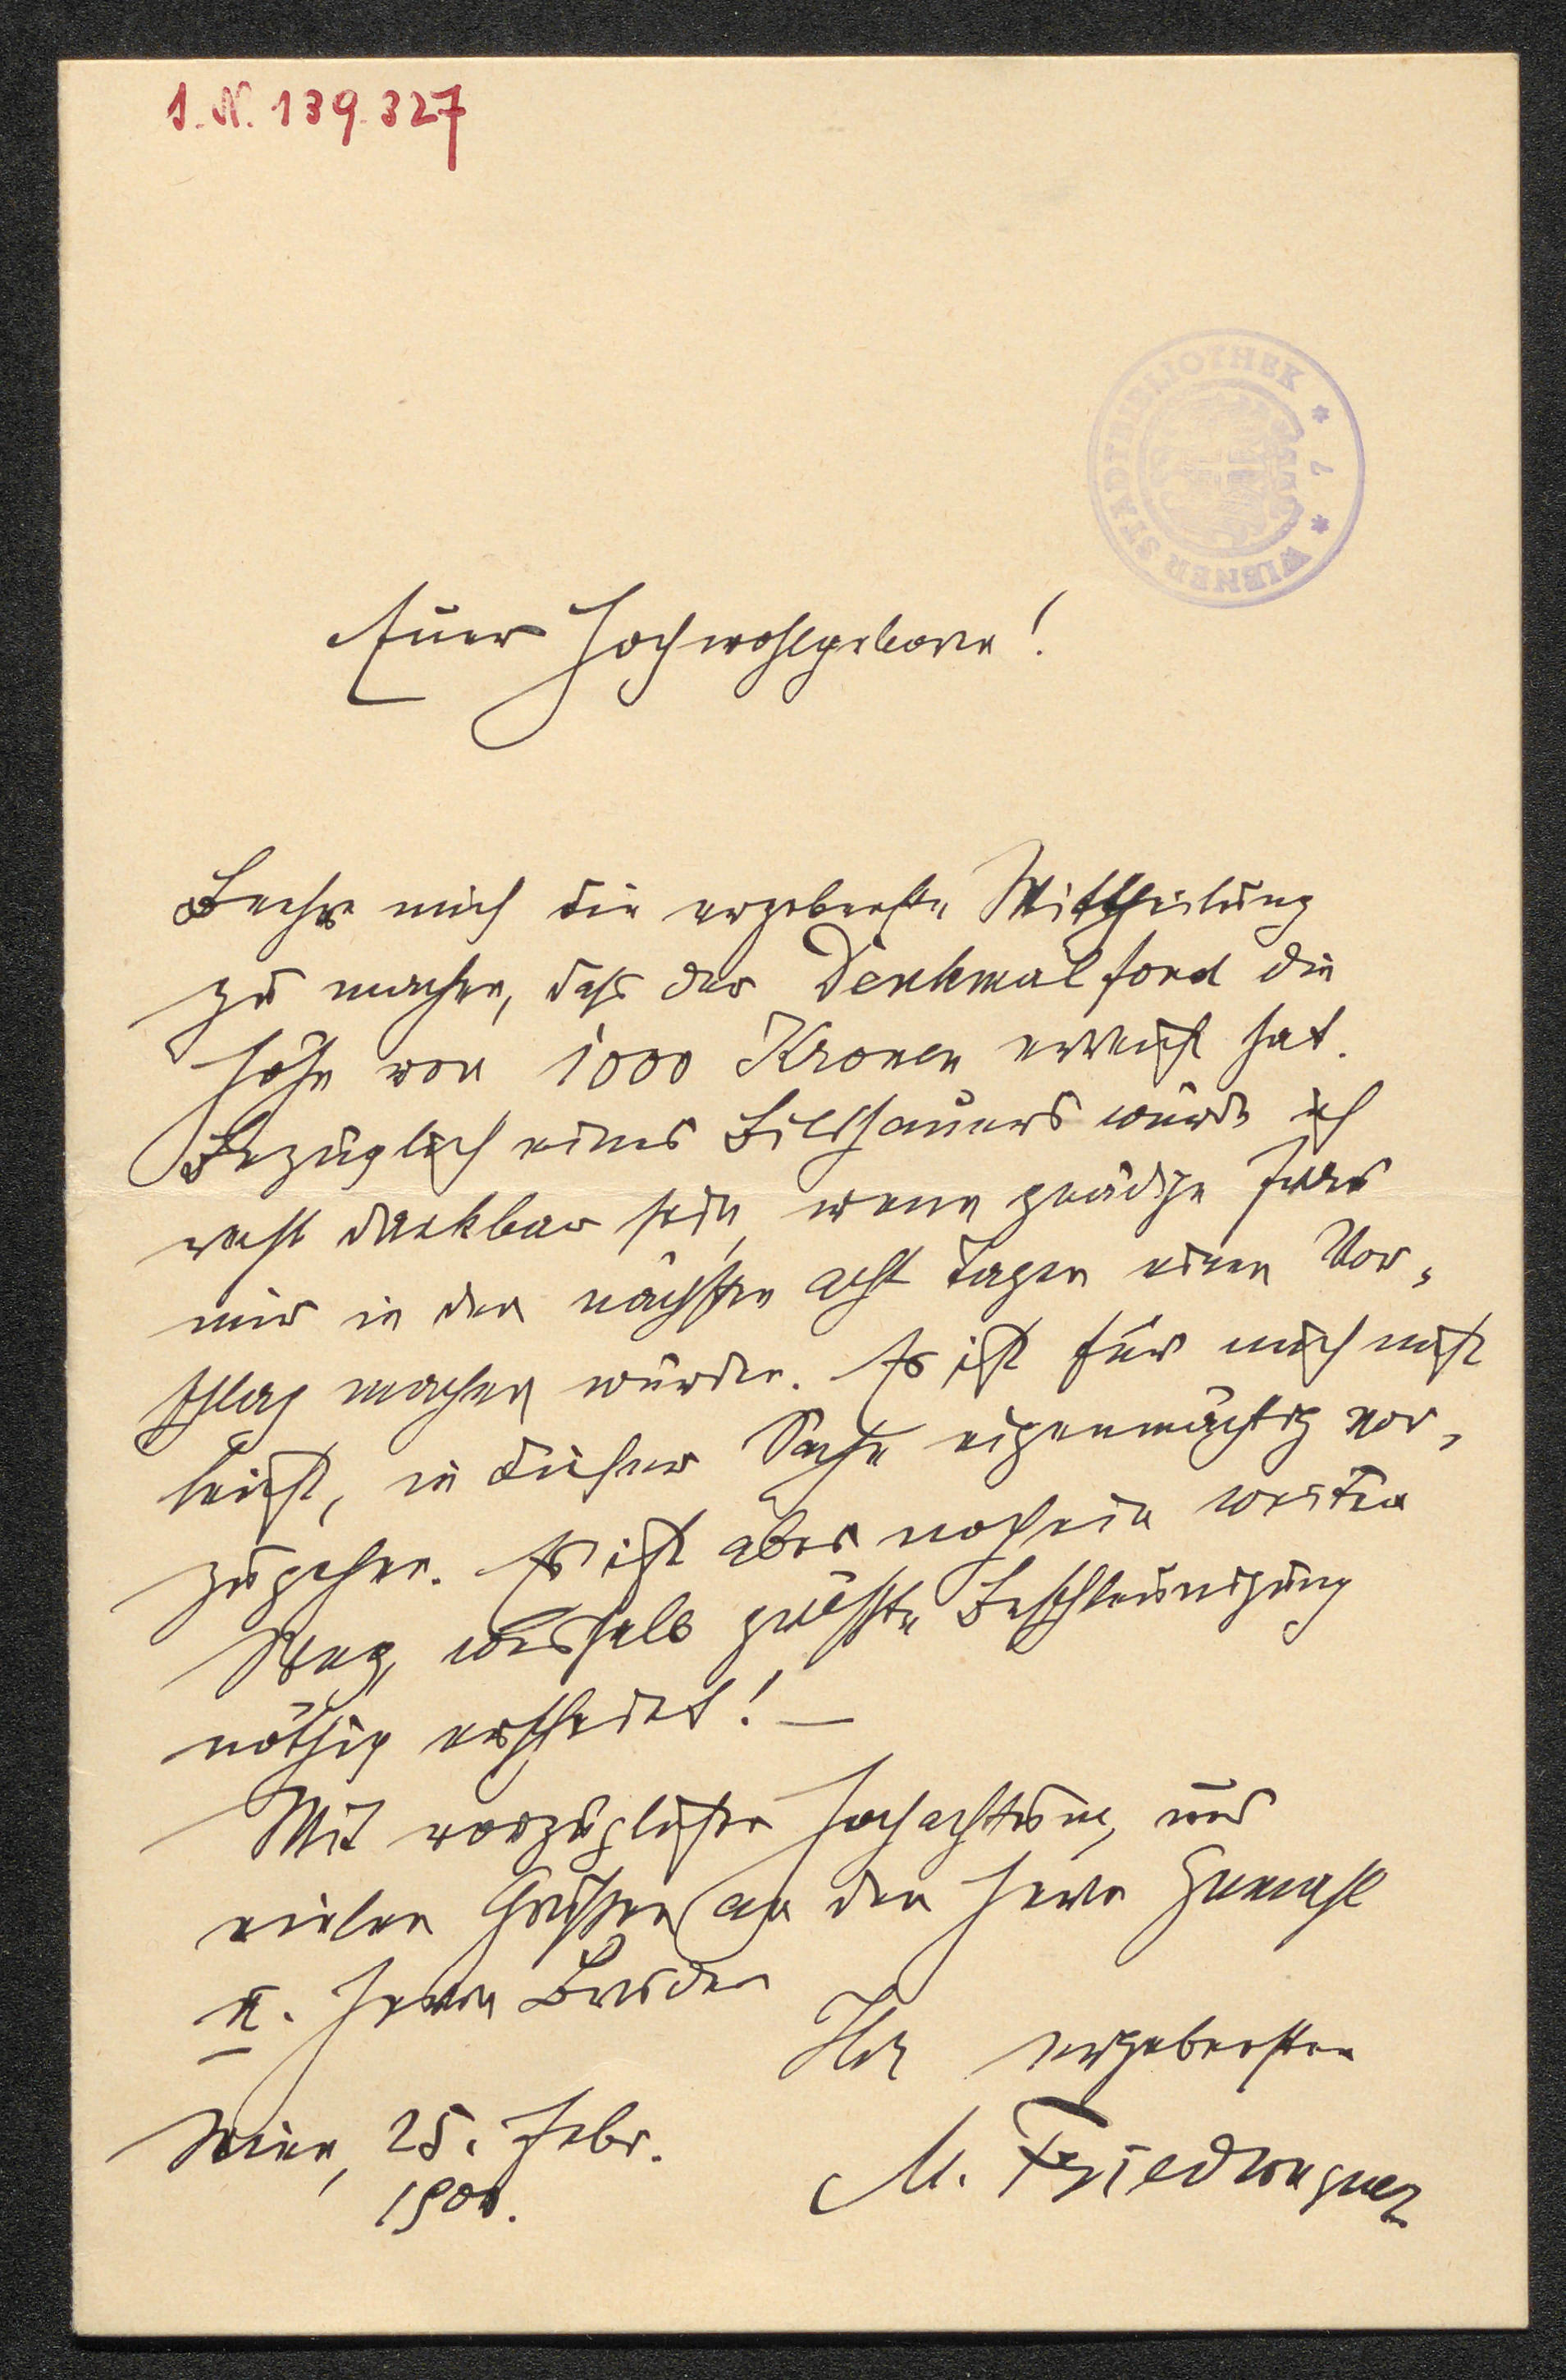 I.N. 139.327
WIENER STADTBIBLIOTHEK * 2 *
Euer Hochwohlgeboren!
Beehre mich die ergebenste Mittheilung
zu machen, daß der Denkmalfond die
Höhe von 1000 Kronen erreicht hat.
Bezüglich eines Bildhauers würde ich
recht dankbar sein, wenn gnädige Frau
mir in den nächsten acht Tagen einen Vor-
schlag machen würden. Es ist für mich nicht
leicht, in dieser Sache eigenmächtig vor-
zugehen. Es ist aber noch ein weiter
Weg, weshalb größte Beschleunigung
nöthig erscheint! –
Mit vorzüglicher Hochachtung, und
vielen Grüßen an den Herrn Gemahl
u. Herrn Bruder
Ihr ergebenster
Wien, 25. Febr.
M. Friedwagner